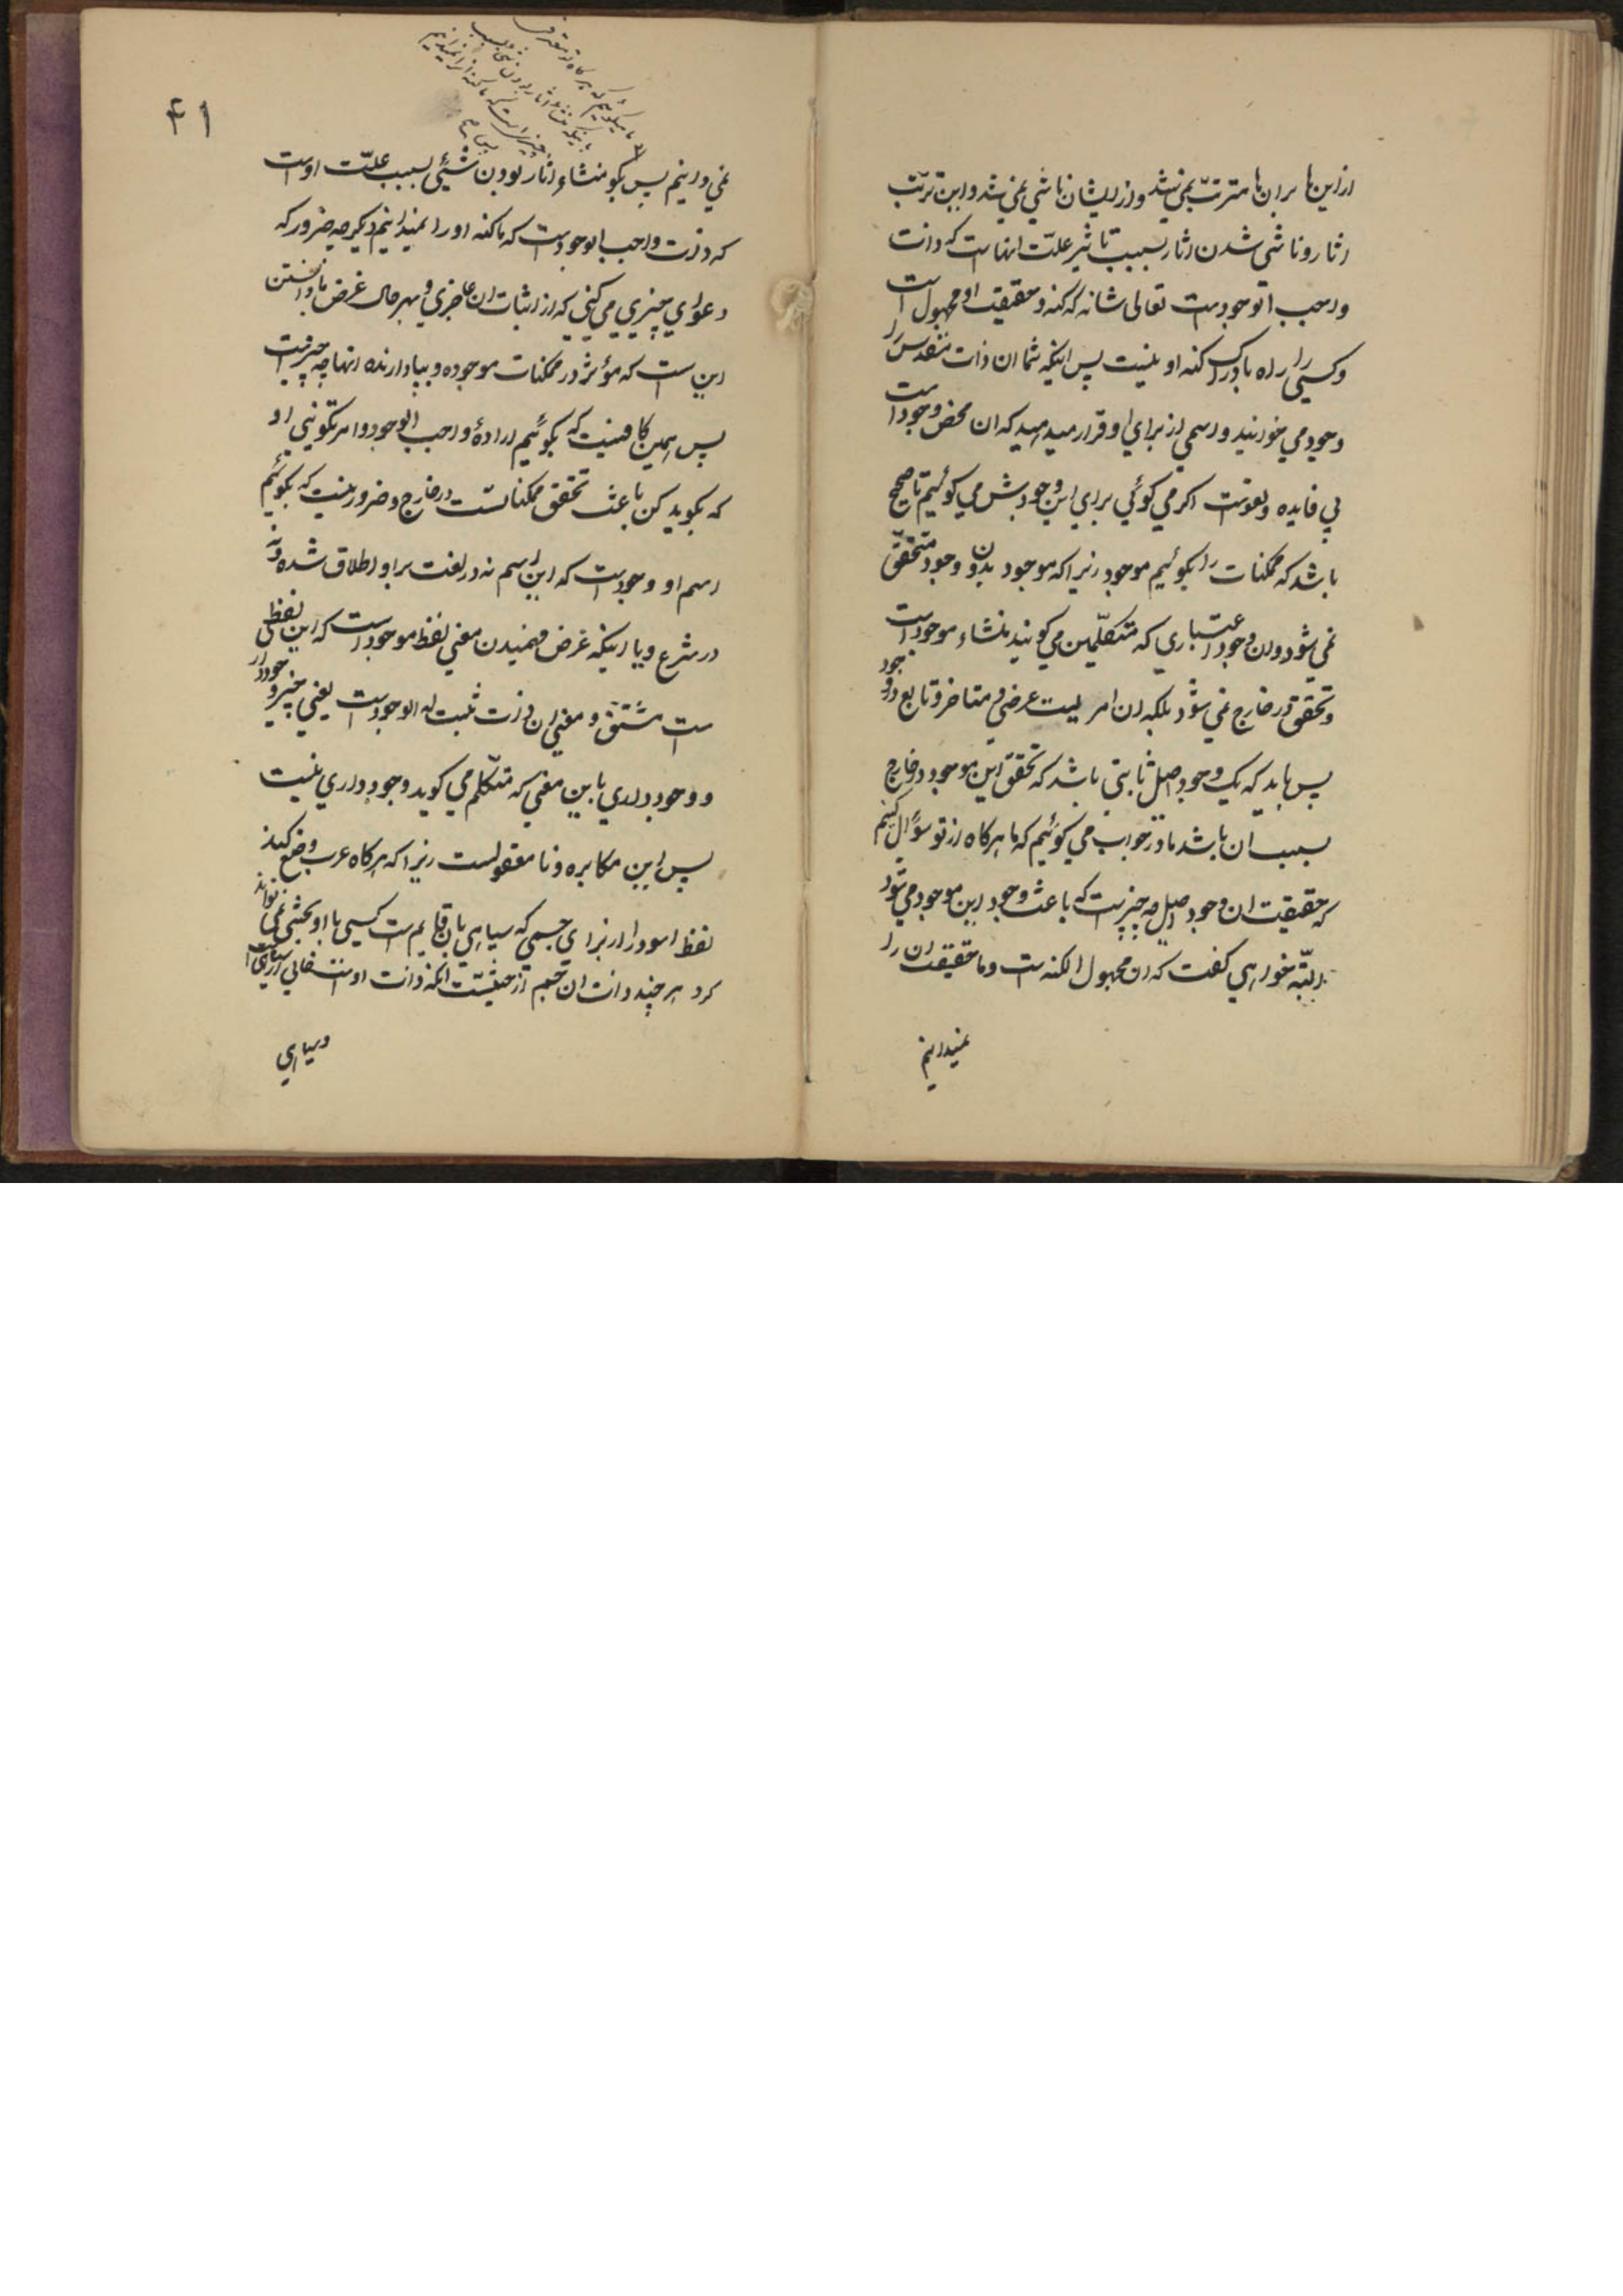 ازاین‌ها بران‌ها مترتب نمی‌شد و از ایشان ناشی نمی‌شد و این ترتب
اثار و ناشی شدن اثار بسبب تاثیر علت انهاست که ذات
واجب الوجودست تعالی شانه که کنه و حقیقت او مجهول است
و کسی را راه بادراک کنه او نیست پس اینکه شما ان ذات مقدس را
وجود می خوانید و اسمی از برای او قرار میدهید که ان محض وجود است
بی فایده و لغوست اکر می کوئی برای این وجودش می کوئیم تا صحیح
باشد که ممکنات را بکوئیم موجود زیرا که موجود بدون وجود متحقق
نمی شود و ان وجود اعتباری که متکلمین می کویند منشاء موجودات
و تحقق در خارج نمی شود بلکه ان امریست عرضی و متاخر و تابع وجود
پس باید که یک وجود اصل ثابتی باشد که تحقق این موجود در خارج
بسبب ان باشد ما در جواب می کوئیم که ما هرکاه از تو سؤال کنیم
که حقیقت ان وجود اصل چه چیزست که باعث وجود این موجود می شود
البته خواهی کفت که ان مجهول الکنه ست و ما حقیقت ان را
نمیدانیم
۴۱
ما میکوئیم که هرکاه تو معترف
باینکه منشاء اثار بودن شی بسبب
چیزی است که ما کنه انرا نمیدانیم
نمی دانیم پس بکو منشاء اثار بودن شیئی بسبب علت اوست
که ذات واجب الوجودست که ما کنه او را نمیدانیم دیکر چه ضرور که
دعوای چیزی می کنی که از اثبات ان عاجزی و بهرحال غرض ما دانستن
این ست که مؤثر در ممکنات موجوده و بپا دارنده انها چه چیزیست
پس همین کافیست که بکوئیم ارادهٔ واجب الوجود و امر تکوینی او
که بکوید کن باعث تحقق ممکناتست در خارج و ضرور نیست که بکوئیم
اسم او وجودست که این اسم نه در لغت بر او اطلاق شده و نه
در شرع و یا اینکه غرض فهمیدن معنی لفظ موجود است که این لفظی
ست مشتق و معنی ان ذات ثبت له الوجودست یعنی چیز وجود دار
و وجود داری باین معنی که متکلم می کوید وجود داری نیست
پس این مکابره و نا معقولست زیرا که هرکاه عرب وضع کند
لفظ اسود را از برای جسمی که سیاهی بان قایم ست کسی با او بحثی نمی تواند
کرد هر چند ذات ان جسم از حیثیت انکه ذات اوست خالی از سیاهی است
و سیاهی